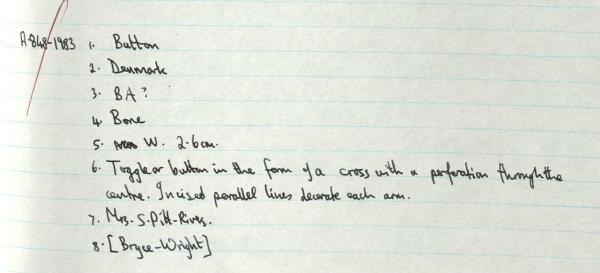 A·848-1983 1. Button
2. Denmark
3. BA?
4. Bone
5. W. 2.6cm.
6. Toggle or button in the form of a cross with a perforation through the
centre. Incised parallel lines decorate each arm.
7. Mrs. S. Pitt-Rivers.
8. [Bryce-Wright]